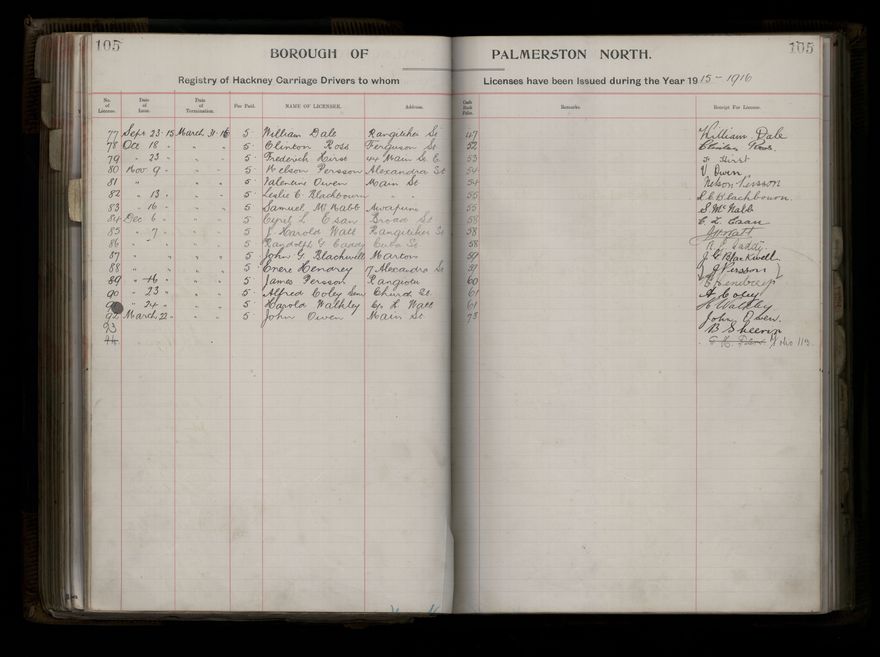 105 105
BOROUGH OF PALMERSTON NORTH.
Registry of Hackney Carriage Drivers to whom Licenses have been Issued during the Year 1915-1916
No. of License. Date of Issue. Date of Termination. Fee Paid. NAME OF LICENSEE. Address. Cash Book Folio. Remarks. Receipt For License.
77 Sept 23-15 March 31-16 5 William Dale Rangitikei St 47 William Dale
78 Oct 18 - " " 5 Clinton Ross Ferguson St 52 Clinton Ross
79 " 23 - " " 5 Frederick Hirst 44 Main St E. 53 F Hirst
80 Nov 9 - " " 5 Nelson Persson Alexandra St 54 V Owen
81 " " " " 5 Valentine Owen Main St 54 Nelson Persson
82 " 13 - " " 5 Leslie C. Blachbourn " " 55 L C Blachbourn
83 " 16 - " " 5 Samuel McNabb Awapuni 55 S. McNabb
84 Dec 6 - " " 5 Cyril L Esau Broad St 58 C L Esau
85 " 7 - " " 5 J Harold Watt Rangitikei St 58
86 " " " " 5 Randolph G Caddy Cuba St 58 R G Caddy
87 " " " " 5 John G Blackwell Marton 59 J G Blackwell
88 " " " " 5 Hendrey 17 Alexandra St 59 J Persson
89 " 16 - " " 5 James Persson Rangiotu 60
90 " 23 - " " 5 Alfred Coley Church St 61 A Coley
" 24 - " " 5 Harold Walkley C/o H Watt 61 H Walkley
92 March 22 - " " 5 John Owen Main St 73 John Owen.
93 B Sheerin
94 No 113